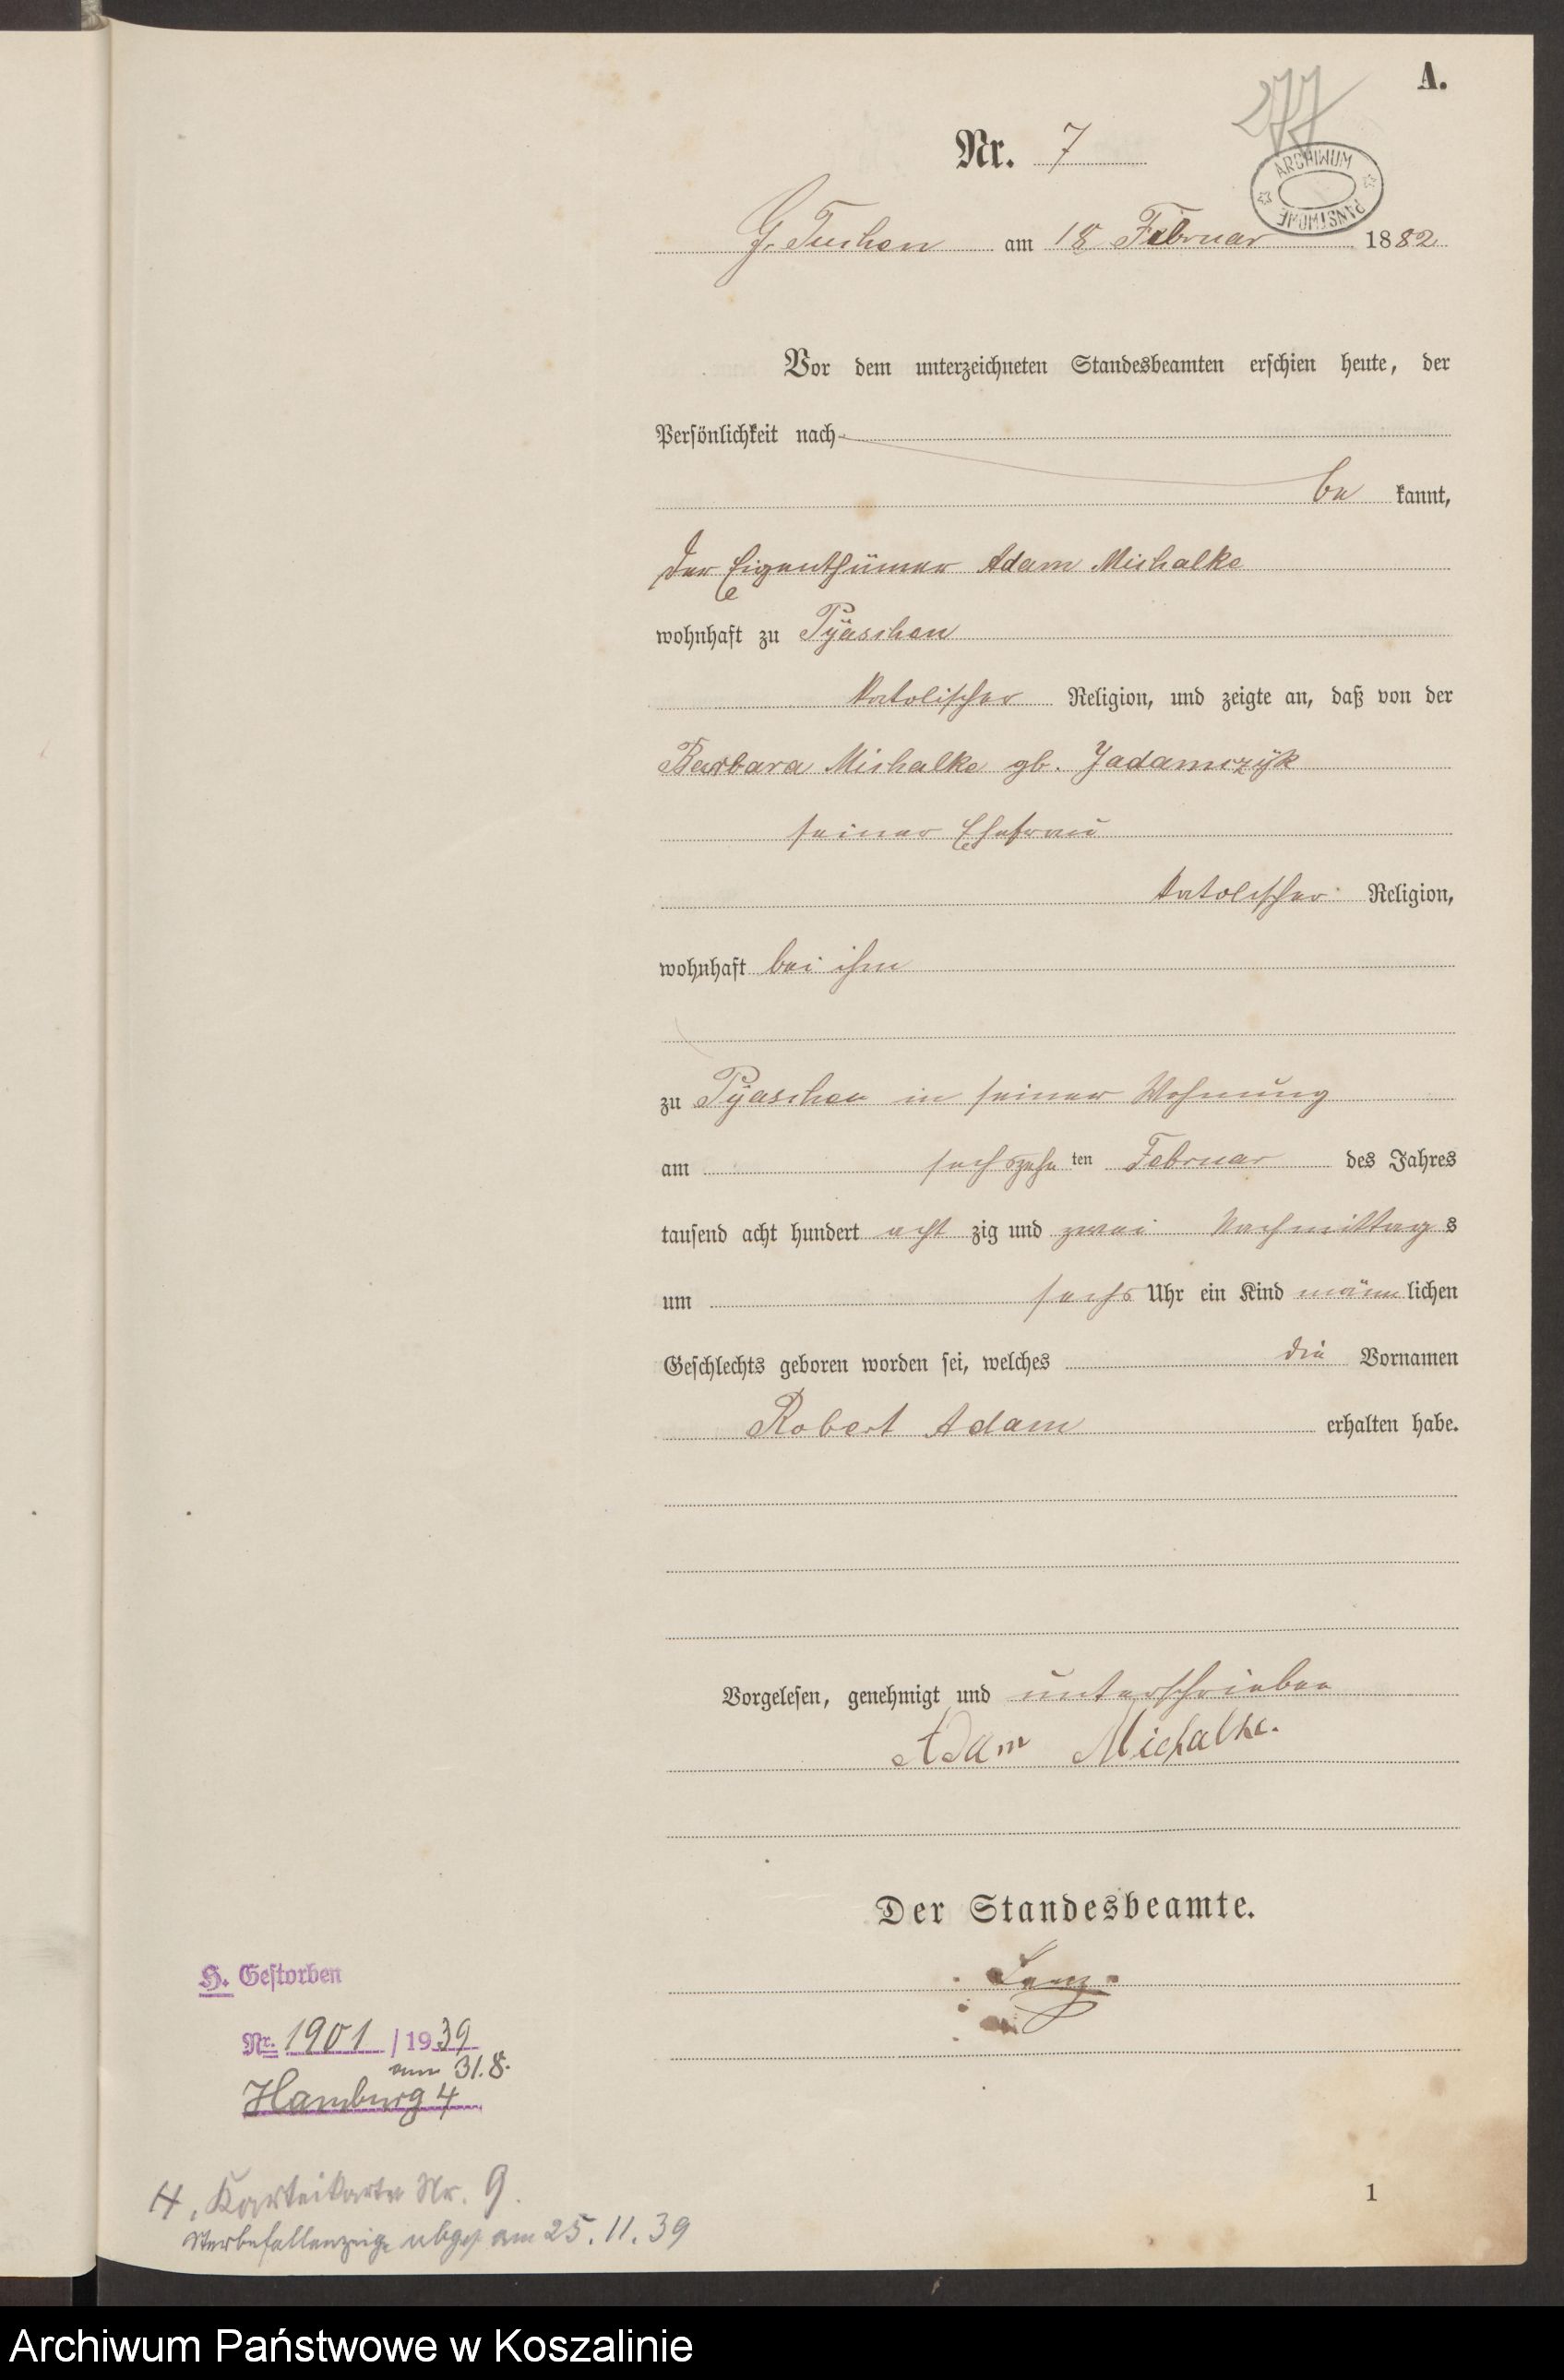 A.
277
Nr. 7
ARCHIWUM PAŃSTWOWE
G. Tuchen am 18 Februar 1882
Vor dem unterzeichneten Standesbeamten erschien heute, der
Persönlichkeit nach
be kannt,
der Eigenthümer Adam Michalke
wohnhaft zu Pÿaschen
katolischer Religion, und zeigte an, daß von der
Barbara Michalke gb. Jadamczÿk
seiner Ehefrau
katolischer Religion,
wohnhaft bei ihm
zu Pÿaschen in seiner Wohnung
am sechszehn ten Februar des Jahres
tausend acht hundert acht zig und zwei Nachmittag s
um sechs Uhr ein Kind männ lichen
Geschlechts geboren worden sei, welches die Vornamen
Robert Adam erhalten habe.
Vorgelesen, genehmigt und unterschrieben
Adam Michalke.
Der Standesbeamte.
H. Gestorben
Nr. 1901 / 1939
am 31.8.
Hamburg 4
H. Karteikarte Nr. 9.
Sterbefallanzeige abges am 25.11.39
1
Archiwum Państwowe w Koszalinie